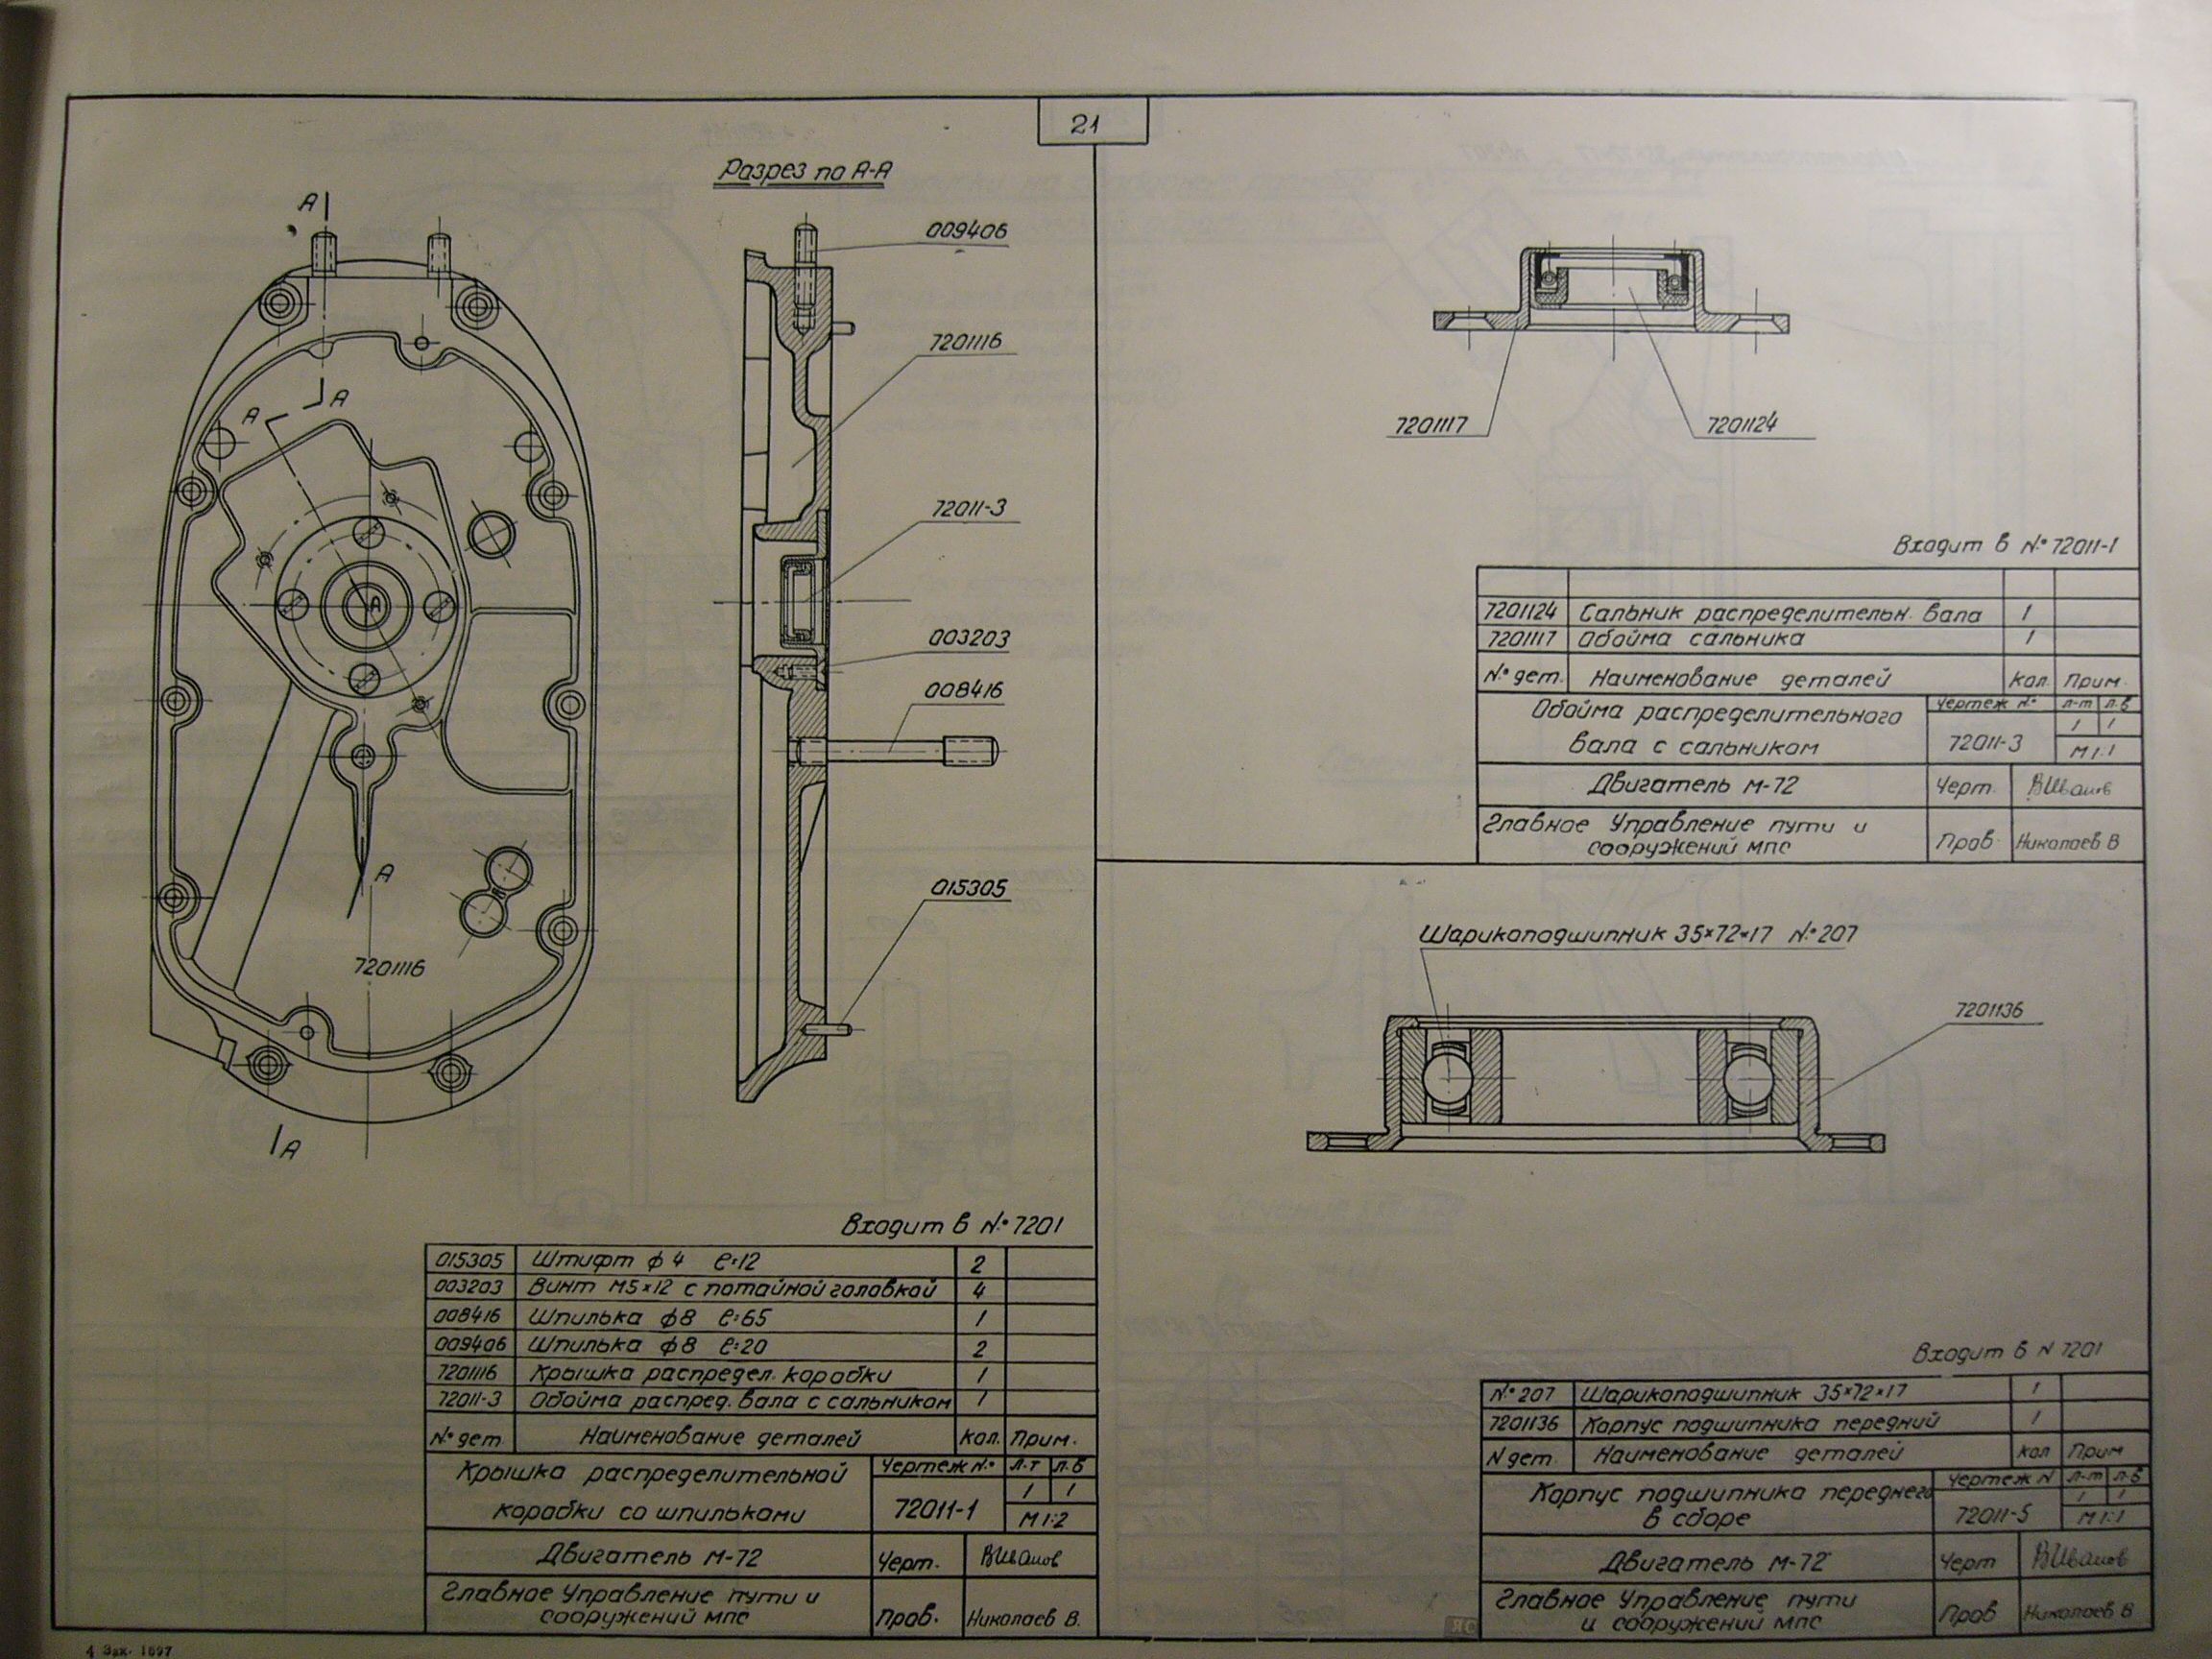 21
Разрез по А-А
А
А
А
А
А
А
7201116
009406
7201116
72011-3
003203
008416
015305
Входит в №7201
015305 Штифт ф 4 ℓ=12 2
003203 Винт М5×12 с потайной головкой 4
008416 Шпилька ф8 ℓ=65 1
009406 Шпилька ф8 ℓ=20 2
7201116 Крышка распредел. коробки 1
72011-3 Обойма распред. вала с сальником 1
№ дет. Наименование деталей Кол. Прим.
Крышка распределительной
коробки со шпильками
Чертеж № л-т л-б
72011-1 1 1
М 1:2
Двигатель М-72 Черт. ВИванов
Главное Управление пути и
сооружений МПС
Пров. Николаев В.
7201117
7201124
Входит в № 72011-1
7201124 Сальник распределительн. вала 1
7201117 Обойма сальника 1
№ дет. Наименование деталей Кол. Прим.
Обойма распределительного
вала с сальником
Чертеж № л-т л-б
72011-3 1 1
М 1:1
Двигатель М-72 Черт. ВИванов
Главное Управление пути и
сооружений МПС
Пров. Николаев В
Шарикоподшипник 35×72×17 №207
7201136
Входит в N 7201
№ 207 Шарикоподшипник 35×72×17 1
7201136 Корпус подшипника передний 1
N дет. Наименование деталей Кол Прим
Корпус подшипника переднего
в сборе
Чертеж N л-т л-б
72011-5 1 1
М 1:1
Двигатель М-72 Черт ВИванов
Главное Управление пути
и сооружений МПС
Пров Николаев В
4 Зак. 1697